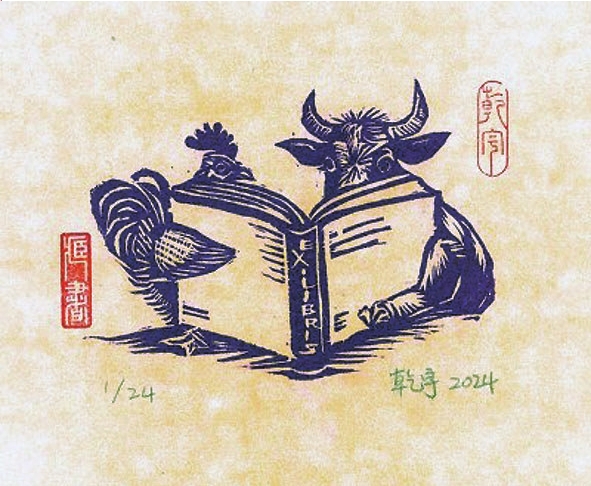 乾宇
EX·LIBRIS
書
1/24
乾宇 2024